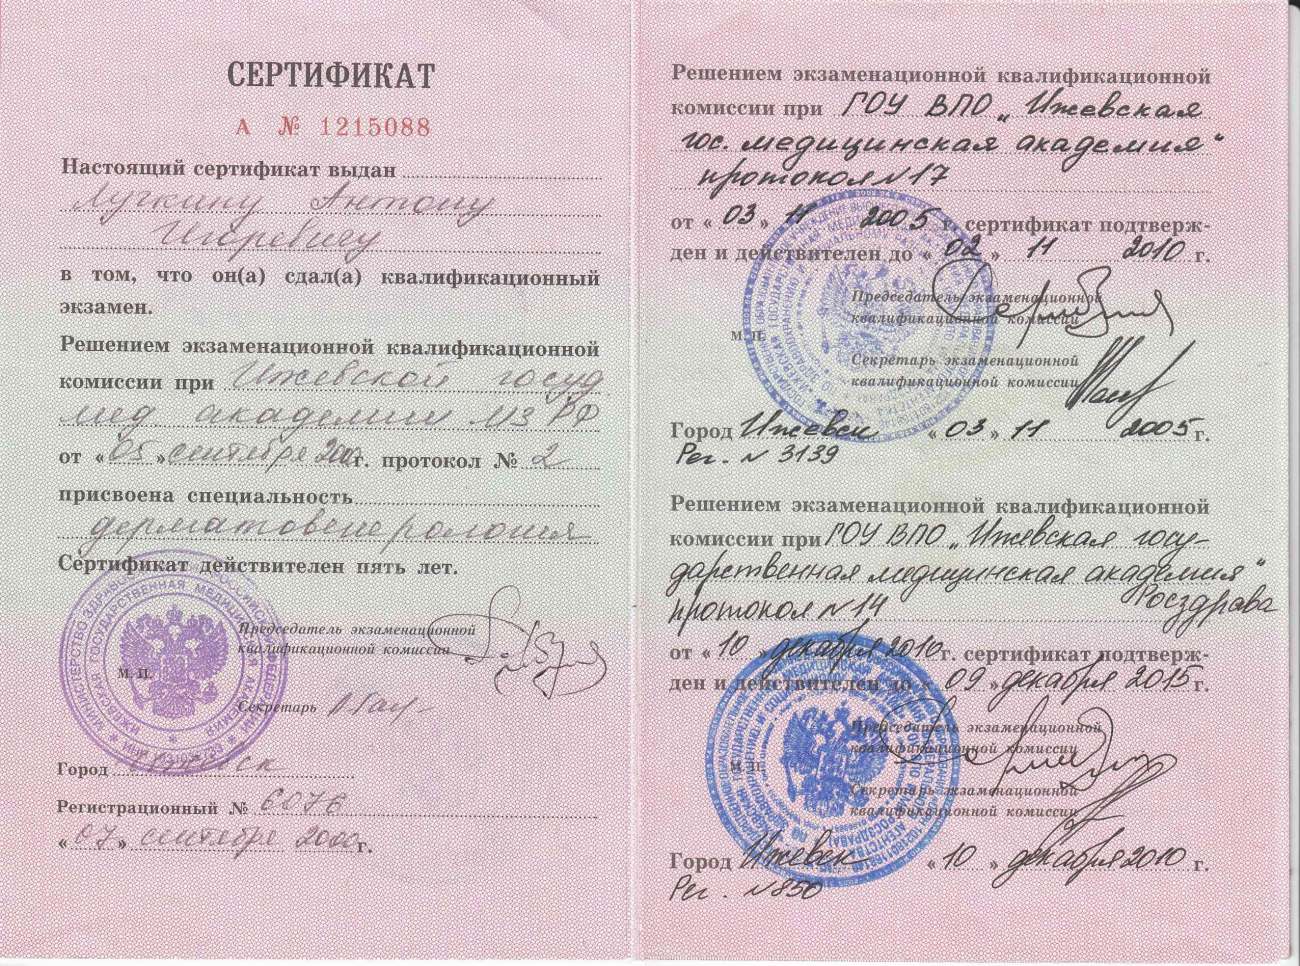 СЕРТИФИКАТ
А № 1215088
Настоящий сертификат выдан
Лучкину Антону
Игоревичу
в том, что он(а) сдал(а) квалификационный
экзамен.
Решением экзаменационной квалификационной
комиссии при Ижевской госуд.
мед. академии МЗ РФ
от «05» сентября 2000г. протокол № 2
присвоена специальность
дерматовенерология
Сертификат действителен пять лет.
Председатель экзаменационной
квалификационной комиссии
М. П.
Секретарь
Город Ижевск
Регистрационный № 6076
«07» сентября 2000г.
Решением экзаменационной квалификационной
комиссии при ГОУ ВПО „Ижевская
гос. медицинская академия“
протокол N 17
от «03» 11 2005 г. сертификат подтверж-
ден и действителен до «02» 11 2010 г.
Председатель экзаменационной
квалификационной комиссии
М. П.
Секретарь экзаменационной
квалификационной комиссии
Город Ижевск «03» 11 2005 г.
Рег. N 3139
Решением экзаменационной квалификационной
комиссии при ГОУ ВПО „Ижевская госу-
дарственная медицинская академия“
протокол N 14 Росздрава
от «10» декабря 2010 г. сертификат подтверж-
ден и действителен до «09» декабря 2015 г.
Председатель экзаменационной
квалификационной комиссии
М. П.
Секретарь экзаменационной
квалификационной комиссии
Город Ижевск «10» декабря 2010 г.
Рег. N 850